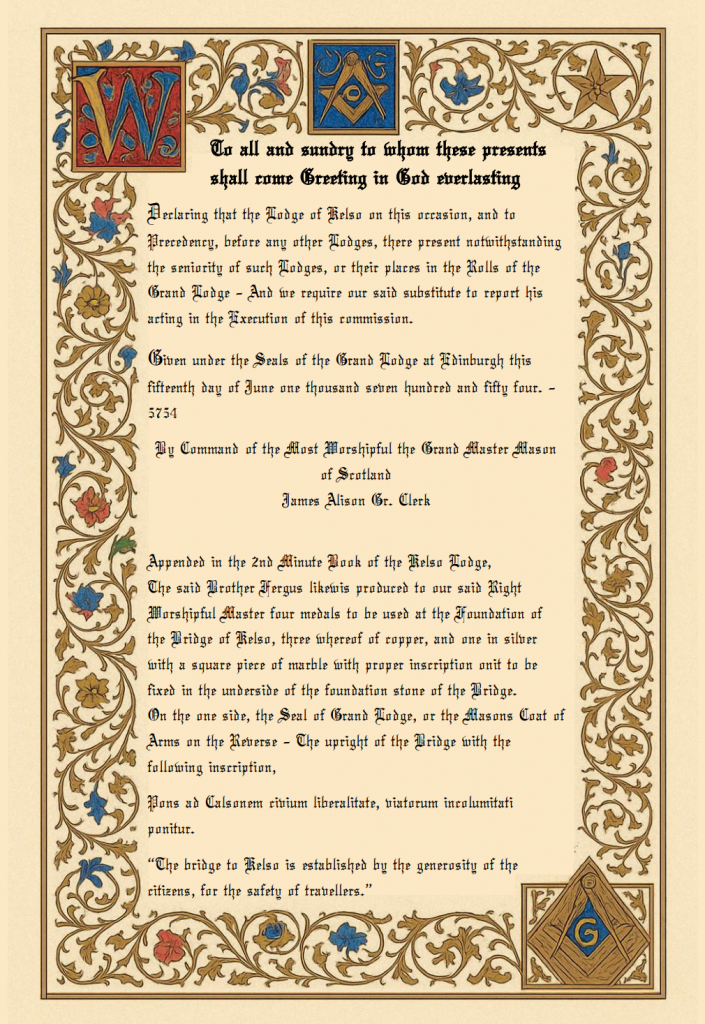 W
To all and sundry to whom these presents
shall come Greeting in God everlasting
Declaring that the Lodge of Kelso on this occasion, and to
Precedency, before any other Lodges, there present notwithstanding
the seniority of such Lodges, or their places in the Rolls of the
Grand Lodge – And we require our said substitute to report his
acting in the Execution of this commission.
Given under the Seals of the Grand Lodge at Edinburgh this
fifteenth day of June one thousand seven hundred and fifty four. –
5754
By Command of the Most Worshipful the Grand Master Mason
of Scotland
James Alison Gr. Clerk
Appended in the 2nd Minute Book of the Kelso Lodge,
The said Brother Fergus likewis produced to our said Right
Worshipful Master four medals to be used at the Foundation of
the Bridge of Kelso, three whereof of copper, and one in silver
with a square piece of marble with proper inscription onit to be
fixed in the underside of the foundation stone of the Bridge.
On the one side, the Seal of Grand Lodge, or the Masons Coat of
Arms on the Reverse – The upright of the Bridge with the
following inscription,
Pons ad Calsonem civium liberalitate, viatorum incolumitati
ponitur.
“The bridge to Kelso is established by the generosity of the
citizens, for the safety of travellers.”
G